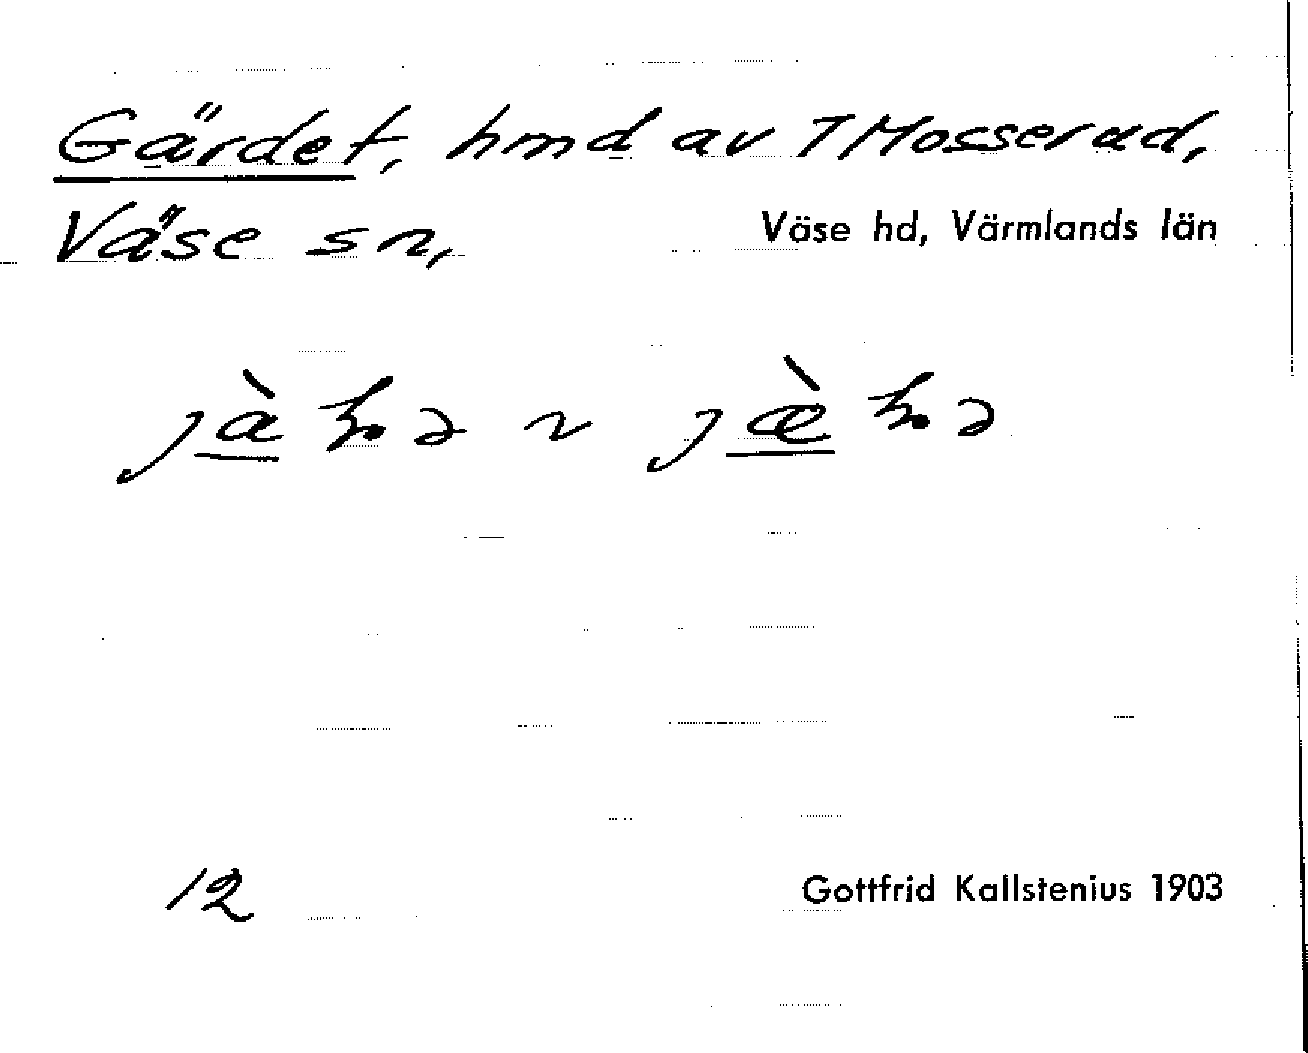 Gärdet, hmd av 7 Mosserud,
Väse sn, Väse hd, Värmlands län
12 Gottfrid Kallstenius 1903